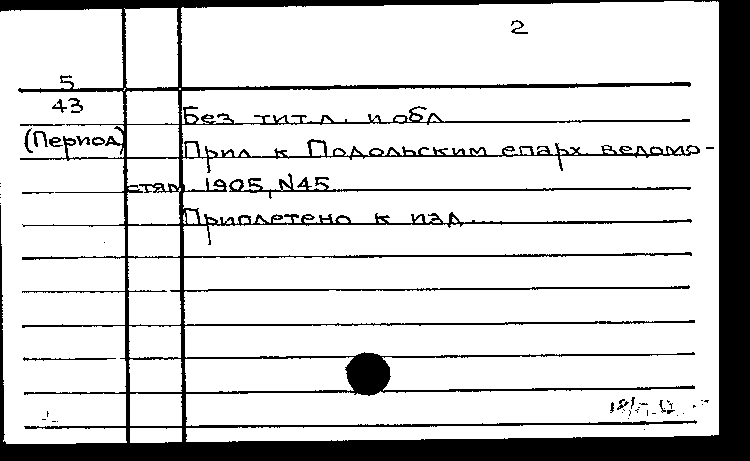 2
5
43
(Период)
Без тит. л. и обл
Прил к Подольским епарх ведомо-
стям 1905, N45
Приплетено к изд...